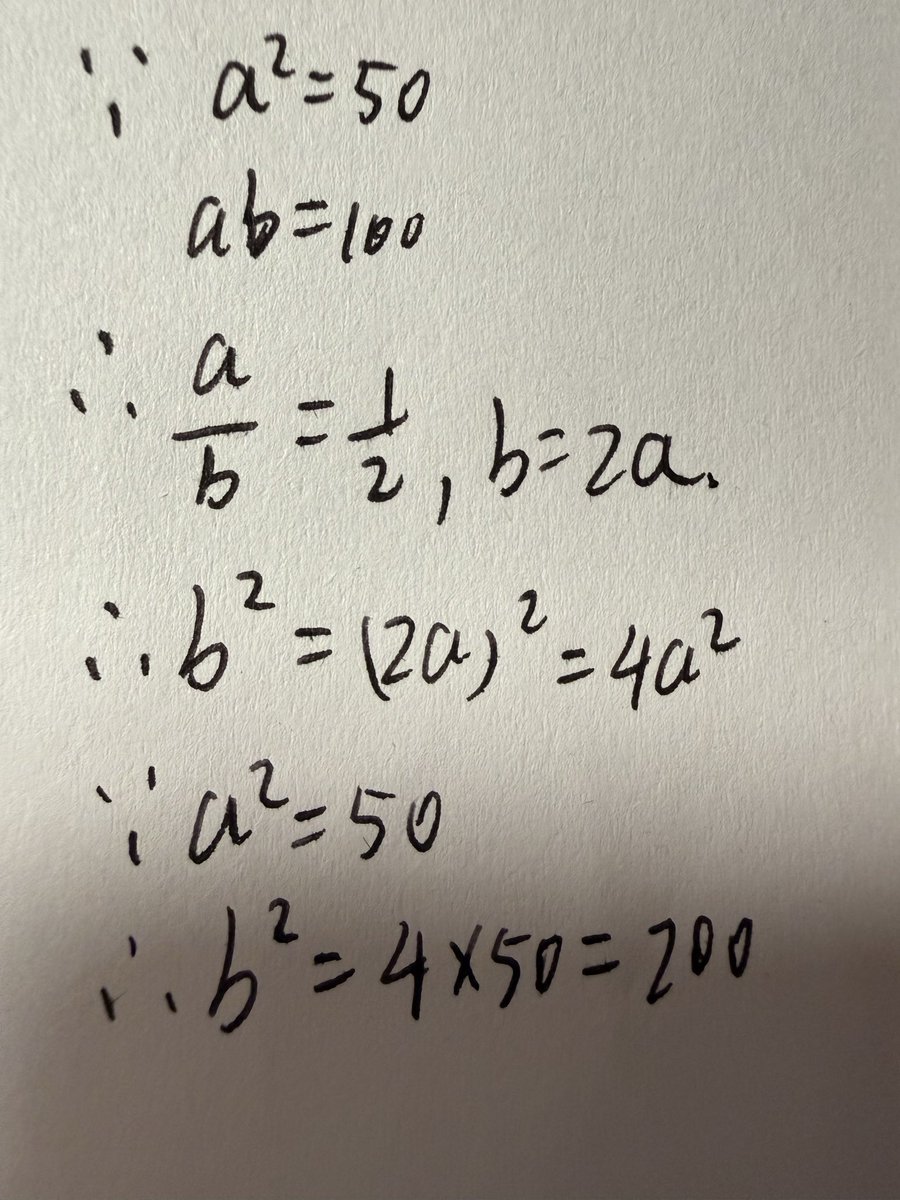 ∵ a²=50
ab=100
∴ a/b = 1/2, b=2a.
∴ b² = (2a)² = 4a²
∵ a²=50
∴ b² = 4×50=200